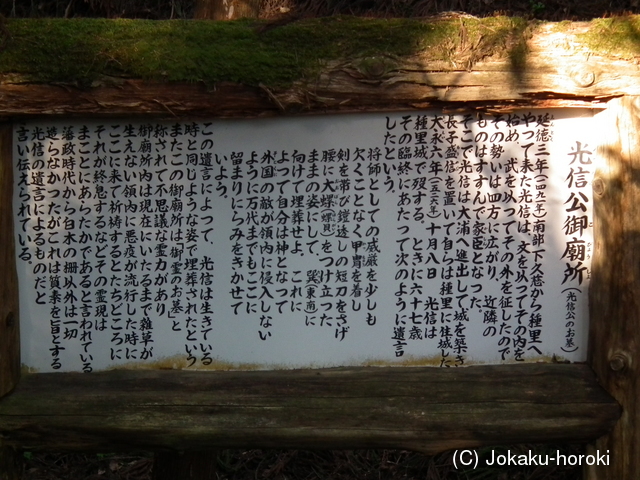 光信公御廟所(光信公のお墓)
延徳三年(一四九一年)南部下久慈から種里へ
やって来た光信は、文を以ってその内を
始め、武を以ってその外を征したので
その勢いは四方に広がり、近隣の
ものはすすんで家臣となった。
そこで光信は大浦へ進出して城を築き
長子盛信を置いて自らは種里に住城した
大永六年(一五二六年)十月八日 光信は
種里城で歿する。ときに六十七歳
その臨終にあたって次のように遺言
したという。
将師としての威厳を少しも
欠くことなく甲冑を着し
剣を帯び鎧透しの短刀をさげ
腰に大螺(螺貝)をつけ立った
ままの姿にして、巽(東南)に
向けて埋葬せよ。これに
よって自分は神となって
外国の敵が領内に侵入しない
ように万代までもここに
留まりにらみをきかせて
いよう。
この遺言によって、光信は生きている
時と同じような姿で埋葬されたという
またこの御廟所は「御霊のお墓」と
称されて不思議な霊力があり
御廟所内は現在にいたるまで雑草が
生えない領内に悪疫が流行した時に
ここに来て祈祷するとたちどころに
それが終息するなどその霊現は
まことにあらたかであると言われている
藩政時代から白木の柵以外は一切
造らなかったがこれは質素を旨とする
光信の遺言によるものだと
言い伝えられている。
(C) Jokaku-horoki